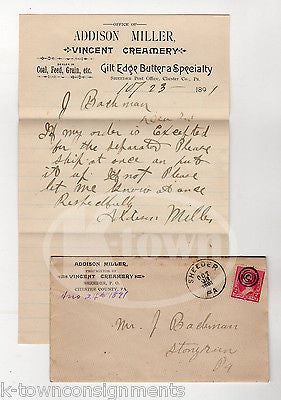 OFFICE OF
ADDISON MILLER,
VINCENT CREAMERY
DEALER IN
Coal, Feed, Grain, etc.
Gilt Edge Butter a Specialty
SHEEDER Post Office, Chester Co., Pa.
10/23 1891
J Bachman
Dear Sir
If my order is Excepted
for the separator Please
ship at once an put
it up if not Please
let me know at once
Respectfully
Addison Miller
K-town
ADDISON MILLER,
PROPRIETOR OF
VINCENT CREAMERY
SHEEDER, P. O.
CHESTER COUNTY, PA.
24th 1891
SHEEDER
OCT
1891
PA
Mr. J Bachman
Stonyrun
Pa
© k-townconsignments